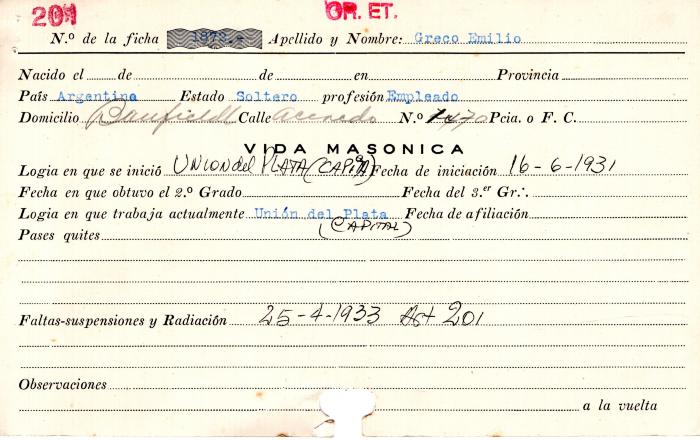 201 OR. ET.
N.º de la ficha 1873.- Apellido y Nombre: Greco Emilio
Nacido el de de en Provincia
País Argentina Estado Soltero profesión Empleado
Domicilio Banfield Calle Acevedo N.º 1470 Pcia. o F. C.
VIDA MASONICA
Logia en que se inició UNION del PLATA (CAPITAL) Fecha de iniciación 16-6-1931
Fecha en que obtuvo el 2.º Grado Fecha del 3.er Gr∴
Logia en que trabaja actualmente Unión del Plata Fecha de afiliación
(CAPITAL)
Pases quites
Faltas-suspensiones y Radiación 25-4-1933 Art 201
Observaciones
a la vuelta